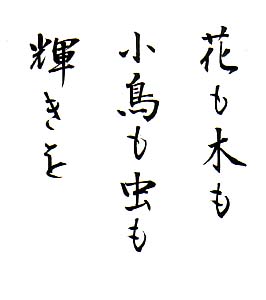 花も木も
小鳥も虫も
輝きを